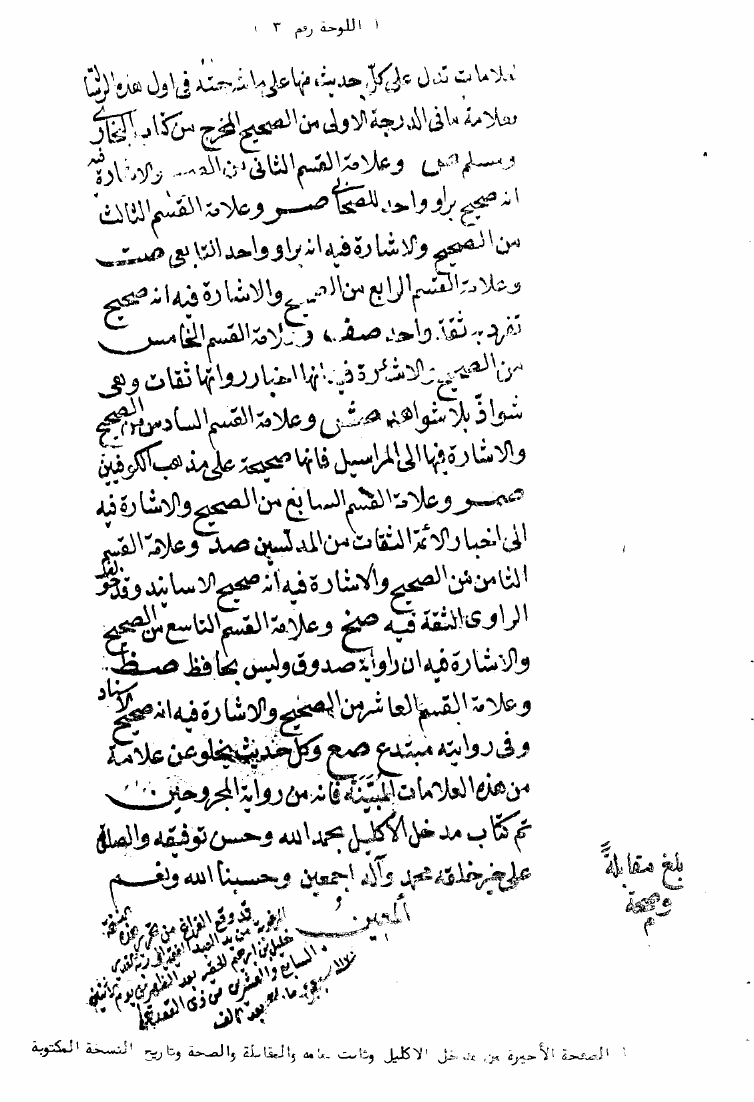 اللوحة رقم ٣
علامات تدل على كل حديث منها على ما شرحته في اول هذه
وعلامة ما في الدرجة الاولى من الصحيح المخرج من كتاب البخاري
ومسلم وعلامة القسم الثاني من والاشارة فيه
انه صحيح براو واحد للصحابي صر وعلامة القسم الثالث
من الصحيح والاشارة فيه انه براو واحد التابعي صت
وعلامة القسم الرابع من الصحيح والاشارة فيه انه صحيح
تفرد به ثقة واحد صف وعلامة القسم الخامس
من الصحيح والاشارة فيه انها اخبار رواتها ثقات وهي
شواذ بلا شواهد صش وعلامة القسم السادس من الصحيح
والاشارة فيها الى المراسيل فانها صحيحة على مذهب الكوفيين
صمر وعلامة القسم السابع من الصحيح والاشارة فيه
الى اخبار الائمة الثقات من المدلسين صد وعلامة القسم
الثامن من الصحيح والاشارة فيه انه صحيح الاسانيد وقد خولف
الراوى الثقة فيه صخ وعلامة القسم التاسع من الصحيح
والاشارة فيه ان راوية صدوق وليس بحافظ صظ
وعلامة القسم العاشر من الصحيح والاشارة فيه انه صحيح الاسناد
وفى روايته مبتدع صع وكل حديث يخلو عن علامة
من هذه العلامات المبينة فانه من رواية المجروحين
تم كتاب مدخل الاكليل بحمد الله وحسن توفيقه والصلاة
على خير خلقه محمد وآله اجمعين وحسبنا الله ونعم
المعين
بلغ مقابلة
وصحة
م
قد وقع الفراغ من تحرير هذه
من يد العبد
خليل بن بعد الظهر من يوم
السابع والعشرين من ذى القعدة
بعد الف
الصفحة الأخيرة من مدخل الاكليل وثابت والمقابلة والصحة وتاريخ النسخة المكتوبة